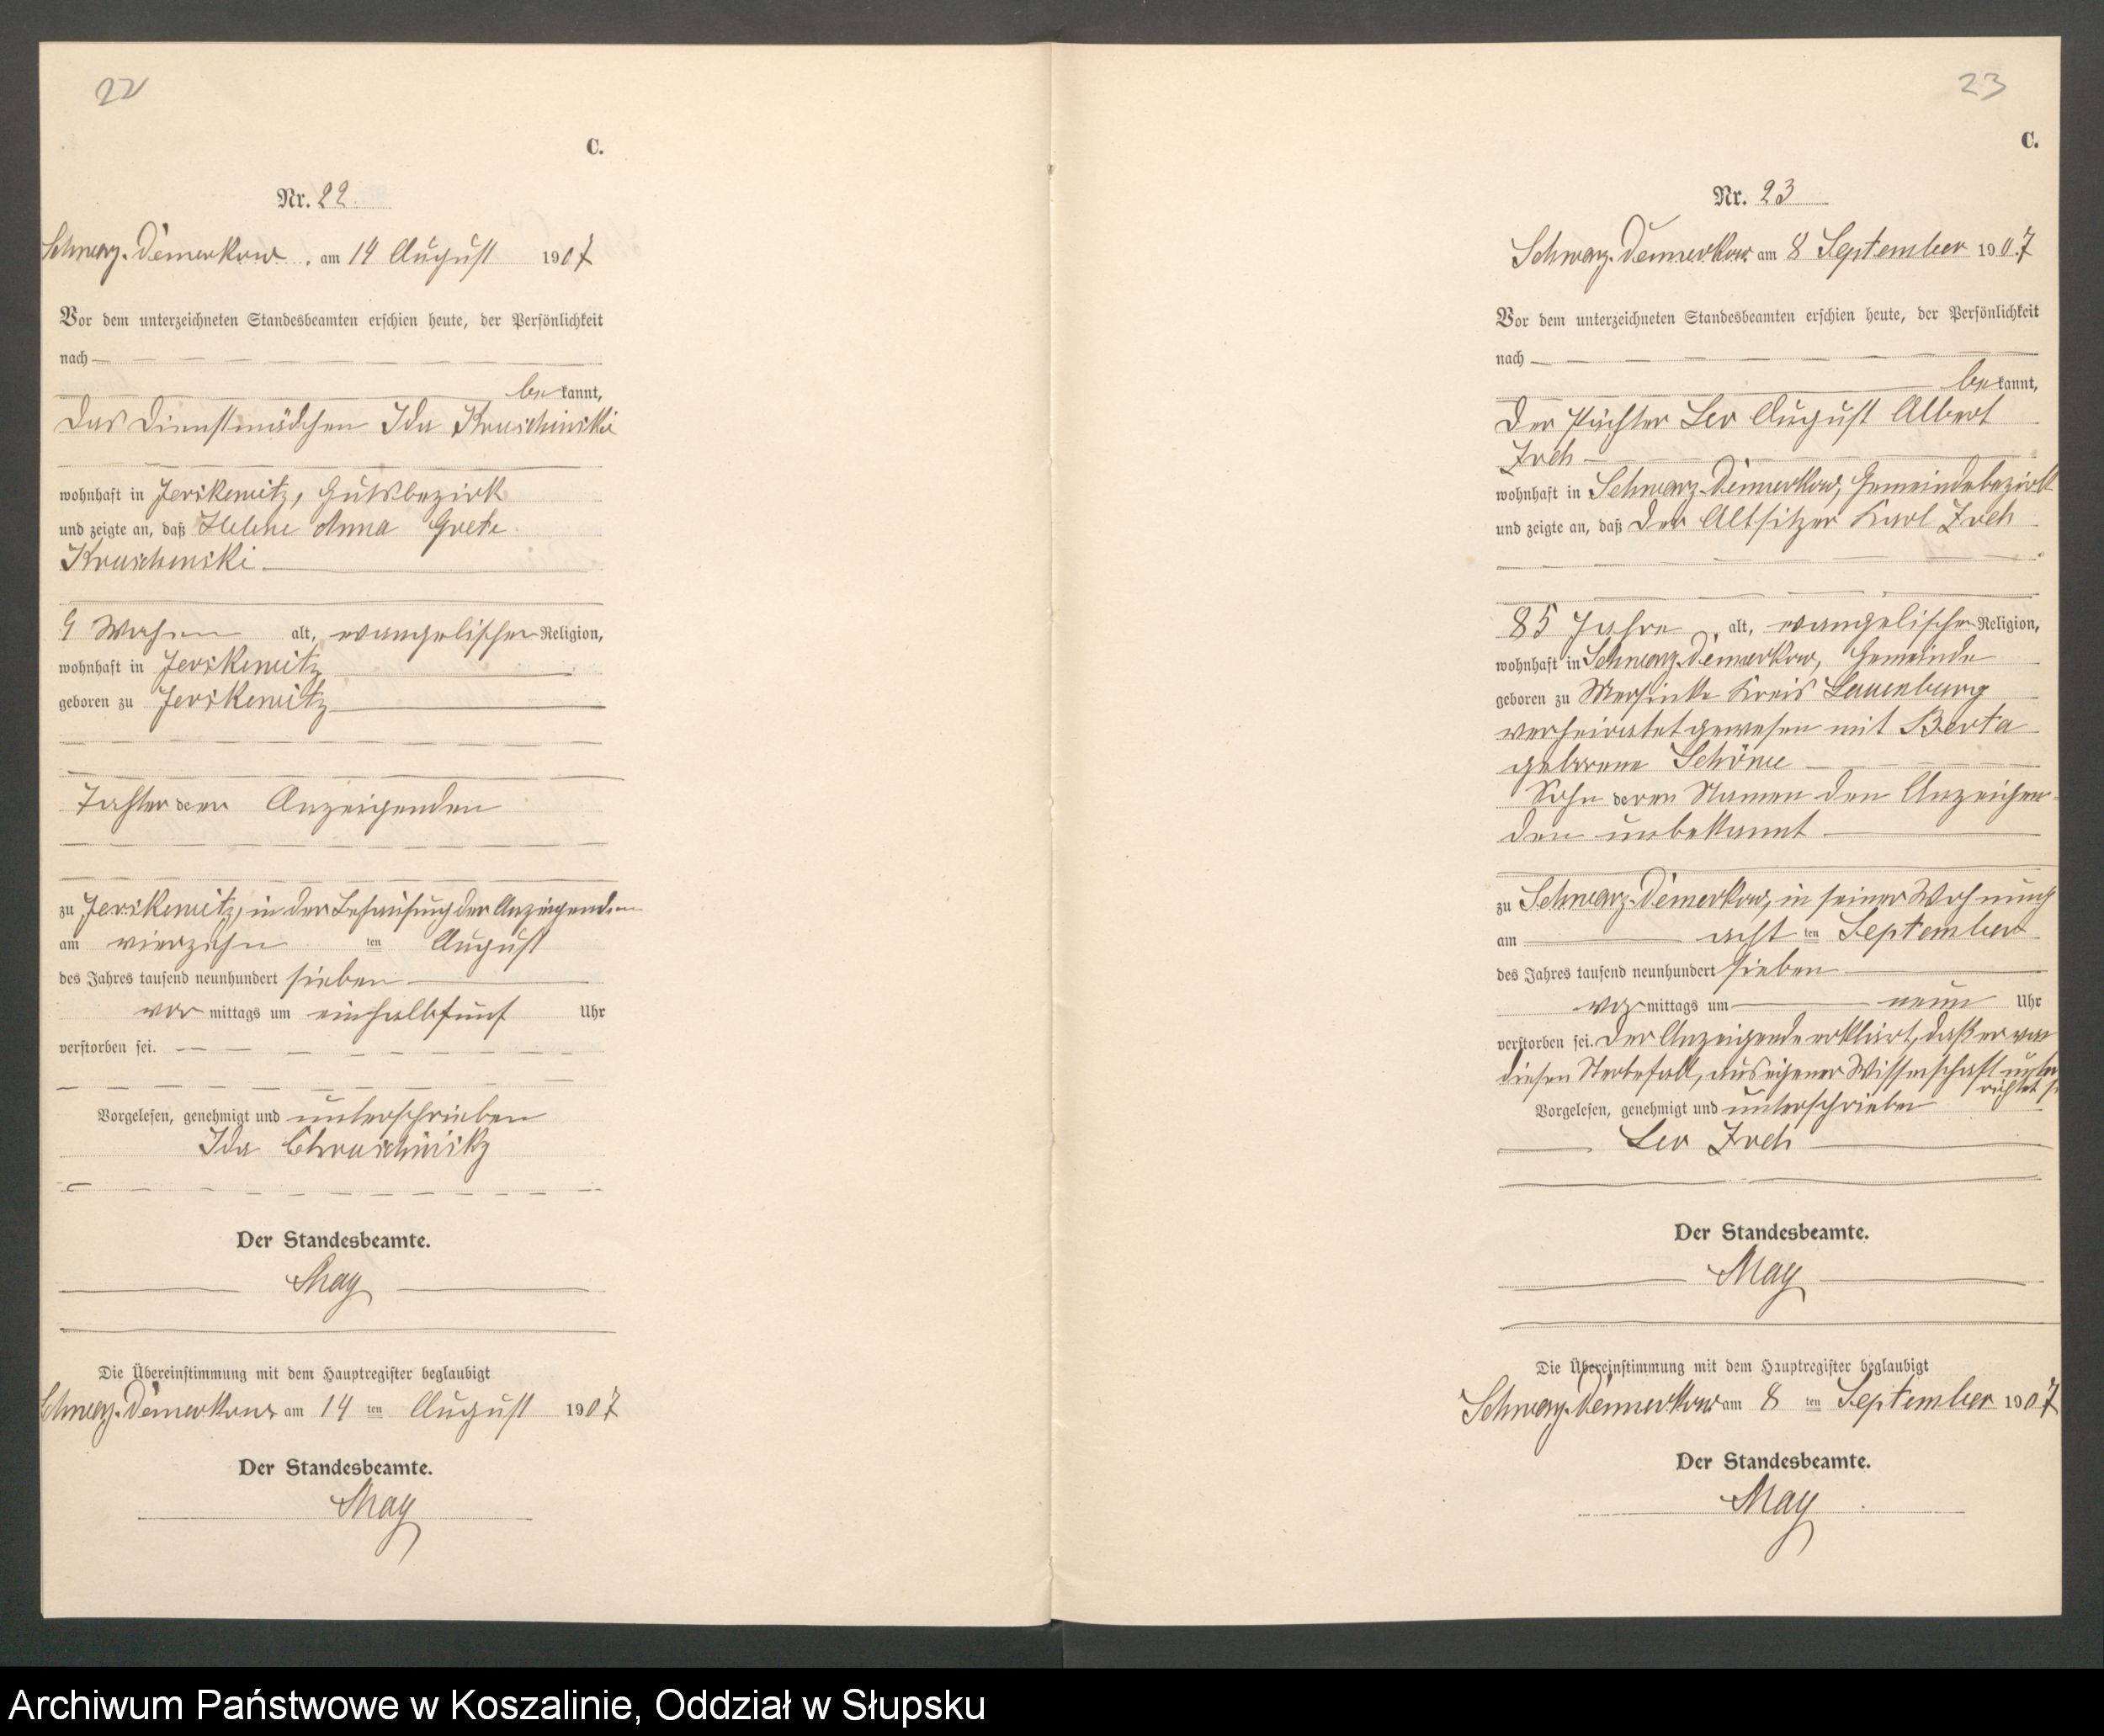 22
C.
Nr. 22.
Schwarz-Damerkow, am 14 August 1907
Vor dem unterzeichneten Standesbeamten erschien heute, der Persönlichkeit
nach
bekannt,
das Dienstmädchen Ida Kruschinski
wohnhaft in Jerskewitz, Gutsbezirk
und zeigte an, daß Helene Anna Grete
Kruschinski
9 Wochen alt, evangelischer Religion,
wohnhaft in Jerskewitz
geboren zu Jerskewitz
Tochter der Anzeigenden
zu Jerskewitz, in der Behausung der Anzeigenden
am vierzehn ten August
des Jahres tausend neunhundert sieben
vor mittags um einhalbfünf Uhr
verstorben sei.
Vorgelesen, genehmigt und unterschrieben
Ida Chruschinsky
Der Standesbeamte.
May
Die Übereinstimmung mit dem Hauptregister beglaubigt
Schwarz-Damerkow am 14 ten August 1907
Der Standesbeamte.
May
23
C.
Nr. 23
Schwarz-Damerkow am 8 September 1907
Vor dem unterzeichneten Standesbeamten erschien heute, der Persönlichkeit
nach
bekannt,
der Pächter Leo August Albert
Zoch
wohnhaft in Schwarz-Damerkow, Gemeindebezirk
und zeigte an, daß der Altsitzer Karl Zoch
85 Jahre alt, evangelischer Religion,
wohnhaft in Schwarz-Damerkow, Gemeinde
geboren zu Mersinke Kreis Lauenburg
verheiratet gewesen mit Berta
geborene
Sohn deren Namen dem Anzeigen-
den unbekannt
zu Schwarz-Damerkow, in seiner Wohnung
am acht ten September
des Jahres tausend neunhundert sieben
vor mittags um neun Uhr
verstorben sei. Der Anzeigende erklärt, daß er von
diesen Sterbefall, aus eigener Wissenschaft unter
richtet
Vorgelesen, genehmigt und unterschrieben
Leo Zoch
Der Standesbeamte.
May
Die Übereinstimmung mit dem Hauptregister beglaubigt
Schwarz-Damerkow am 8 ten September 1907
Der Standesbeamte.
May
Archiwum Państwowe w Koszalinie, Oddział w Słupsku